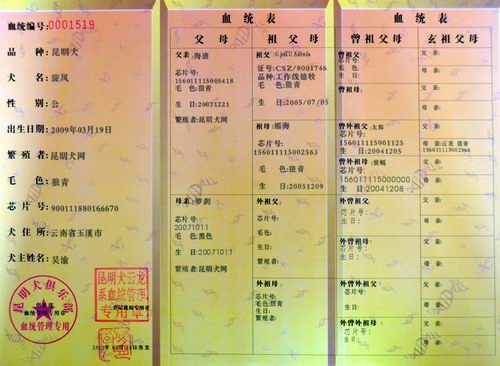 血统编号:0001519
品 种: 昆明犬
犬 名: 旋风
性 别: 公
出生日期: 2009年03月19日
繁殖者: 昆明犬网
毛 色: 狼青
芯片号: 900111880166670
犬住所: 云南省玉溪市
犬主姓名: 吴渝
昆明犬俱乐部
血统管理专用章
血统管理专用
昆明犬云龙
系血统管理
专用章
血统表
父母
祖父母
父亲:海迪
芯片号:
156011115005418
毛 色:狼青
生 日:20071221
繁殖者:昆明犬网
母亲:萝刹
芯片号:
20071011
毛 色:黑色
生 日:20071011
繁殖者:昆明犬网
祖父:
证号:CSZ/8001746
品种:工作线德牧
毛 色:狼青
生 日:2005/07/05
祖母:福海
芯片号:
156011115002563
毛 色:狼青
生 日:20051209
外祖父:
芯片号:
毛色:
生日:
繁殖者:
外祖母:
芯片号:
毛色:狼青
生日:
繁殖者:
血统表
曾祖父母
玄祖父母
曾祖父:
芯片号:
毛 色:
生 日:
曾祖母:
曾外祖父:太郎
芯片号:
156011115001125
生 日:20041205
曾外祖母:
芯片号:
1560111115000000
生 日:20041208
外曾祖父:
芯片号:
生 日:
外曾祖母:
芯片号:
生 日:
外曾祖父:
芯片号:
生 日:
外曾祖母:
芯片号:
生 日:
父亲:
母亲:
父亲:
母亲:
父亲:
母亲:云龙 狼青
156011115002566
父亲:
母亲:
父亲:
母亲:
父亲:
母亲:
父亲:
母亲:
父亲:
母亲: